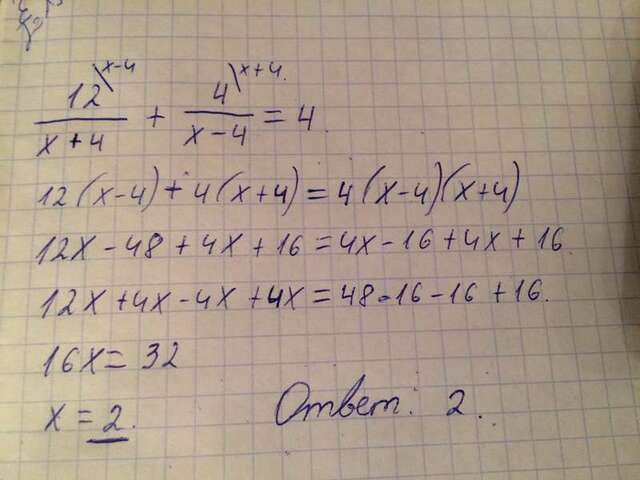 12\x-4 / x+4 + 4\x+4 / x-4 = 4
12(x-4)+4(x+4)=4(x-4)(x+4)
12x-48+4x+16=4x-16+4x+16
12x+4x-4x+4x=48-16-16+16.
16x=32
x=2. Ответ: 2.